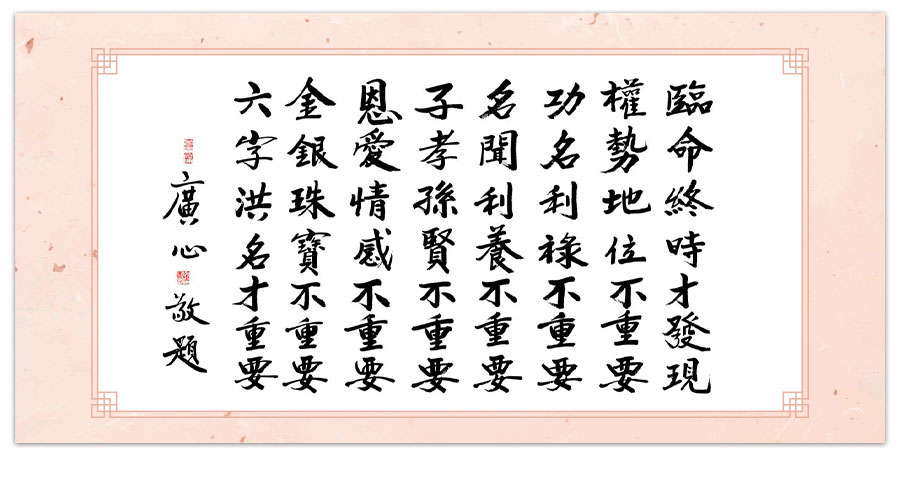 臨命終時才發現
權勢地位不重要
功名利祿不重要
名聞利養不重要
子孝孫賢不重要
恩愛情感不重要
金銀珠寶不重要
六字洪名才重要
廣心敬題